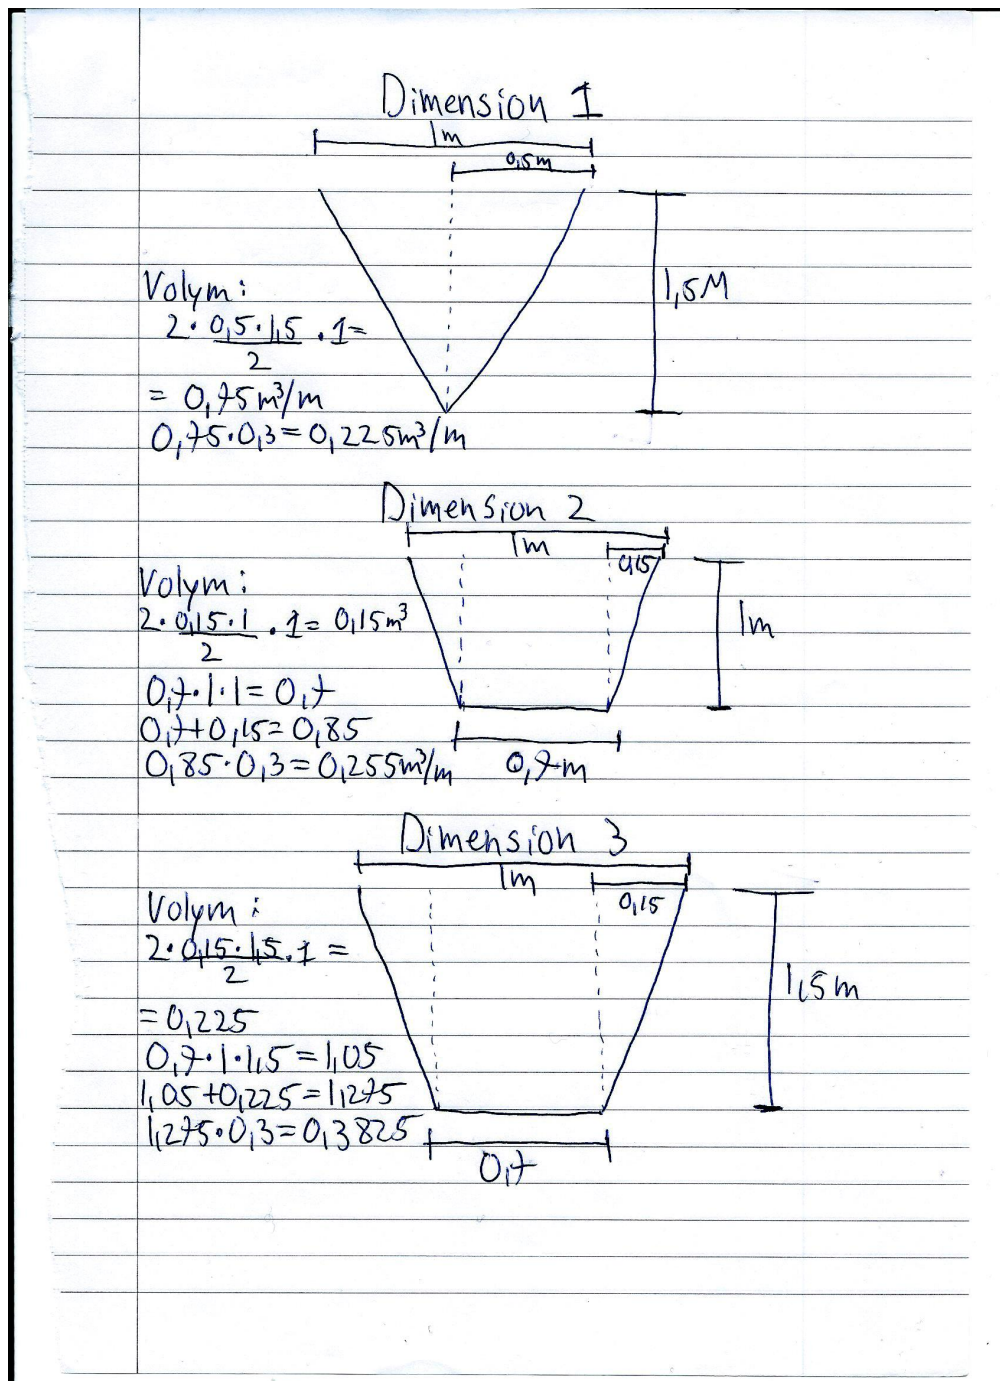 Dimension 1
1m
0,5m
1,5M
Volym:
2·0,5·1,5/2·1=
= 0,75m³/m
0,75·0,3=0,225m³/m
Dimension 2
1m
0,15
Volym:
2·0,15·1/2·1= 0,15m³
1m
0,7·1·1=0,7
0,7+0,15=0,85
0,85·0,3=0,255m³/m
0,7m
Dimension 3
1m
0,15
Volym:
2·0,15·1,5/2·1=
1,5m
=0,225
0,7·1·1,5=1,05
1,05+0,225=1,275
1,275·0,3=0,3825
0,7